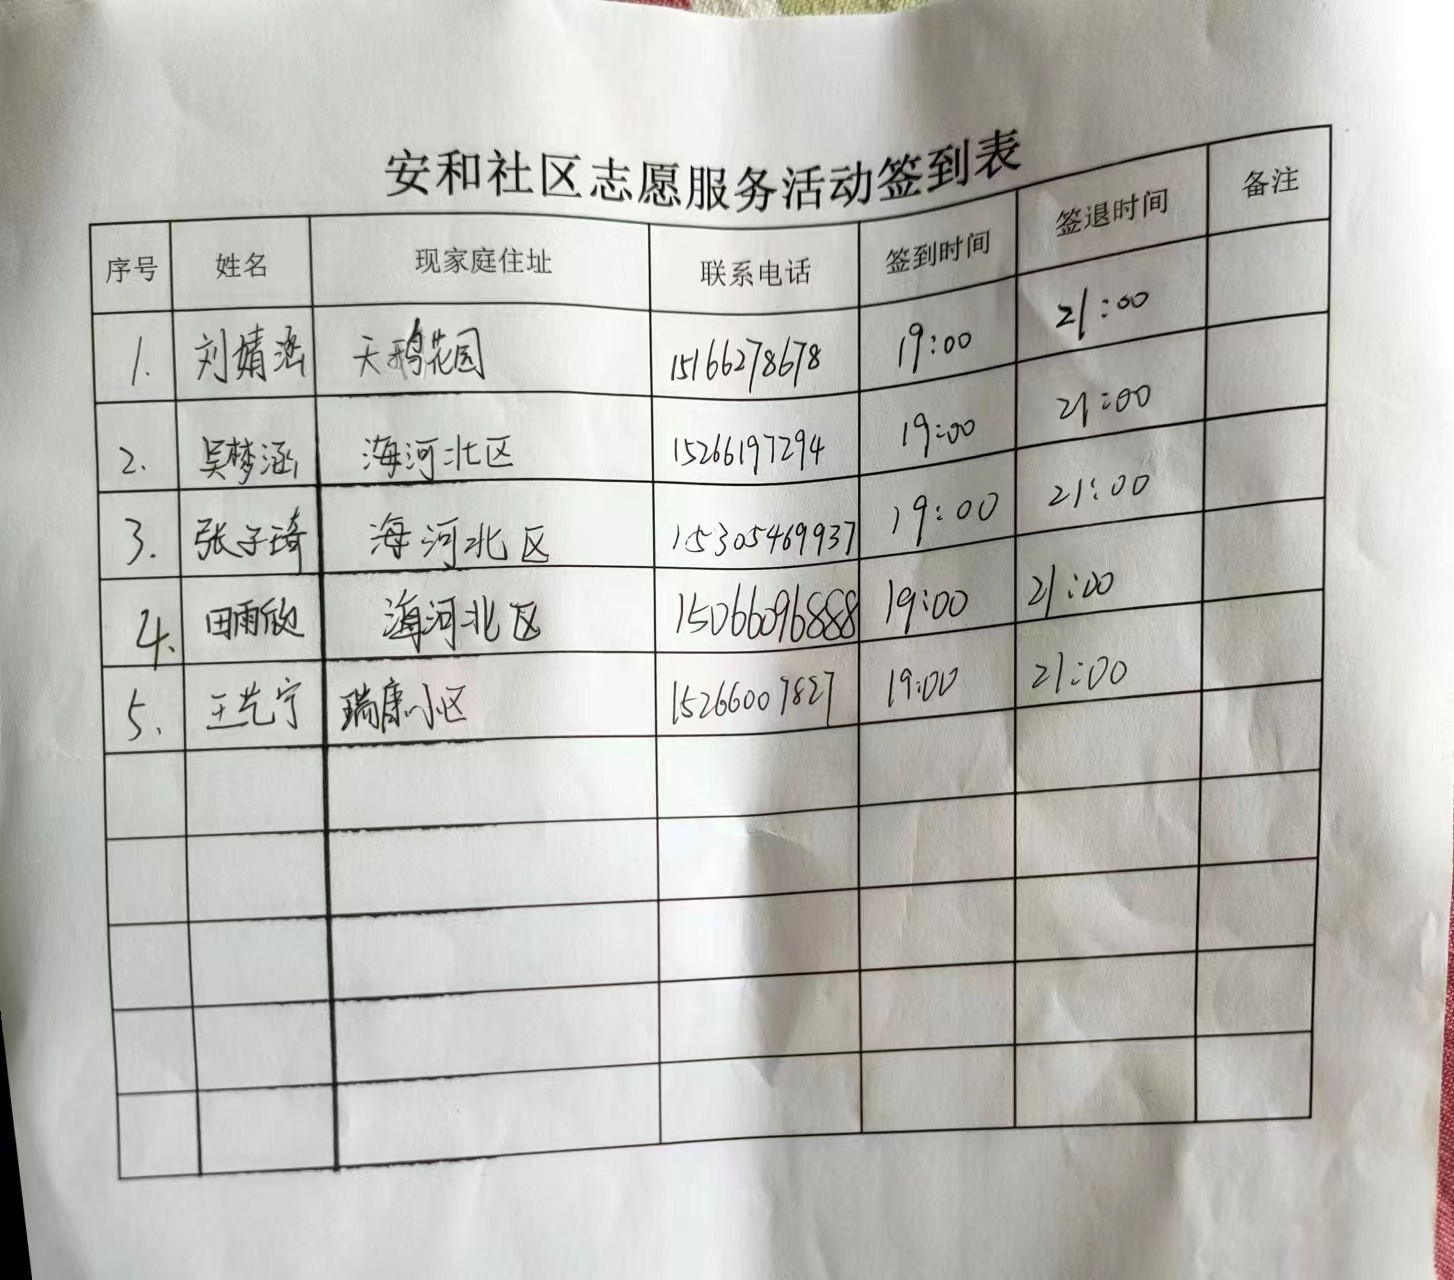 安和社区志愿服务活动签到表
序号 姓名 现家庭住址 联系电话 签到时间 签退时间 备注
1. 刘婧涵 天鹅花园 15166278678 19:00 21:00
2. 吴梦涵 海河北区 15266197294 19:00 21:00
3. 张子琦 海河北区 15305469937 19:00 21:00
4. 田雨欣 海河北区 15066096888 19:00 21:00
5. 王艺宁 瑞康小区 15266007827 19:00 21:00